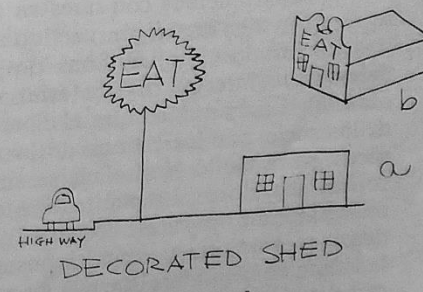 EAT
EAT
b
a
HIGHWAY
DECORATED SHED